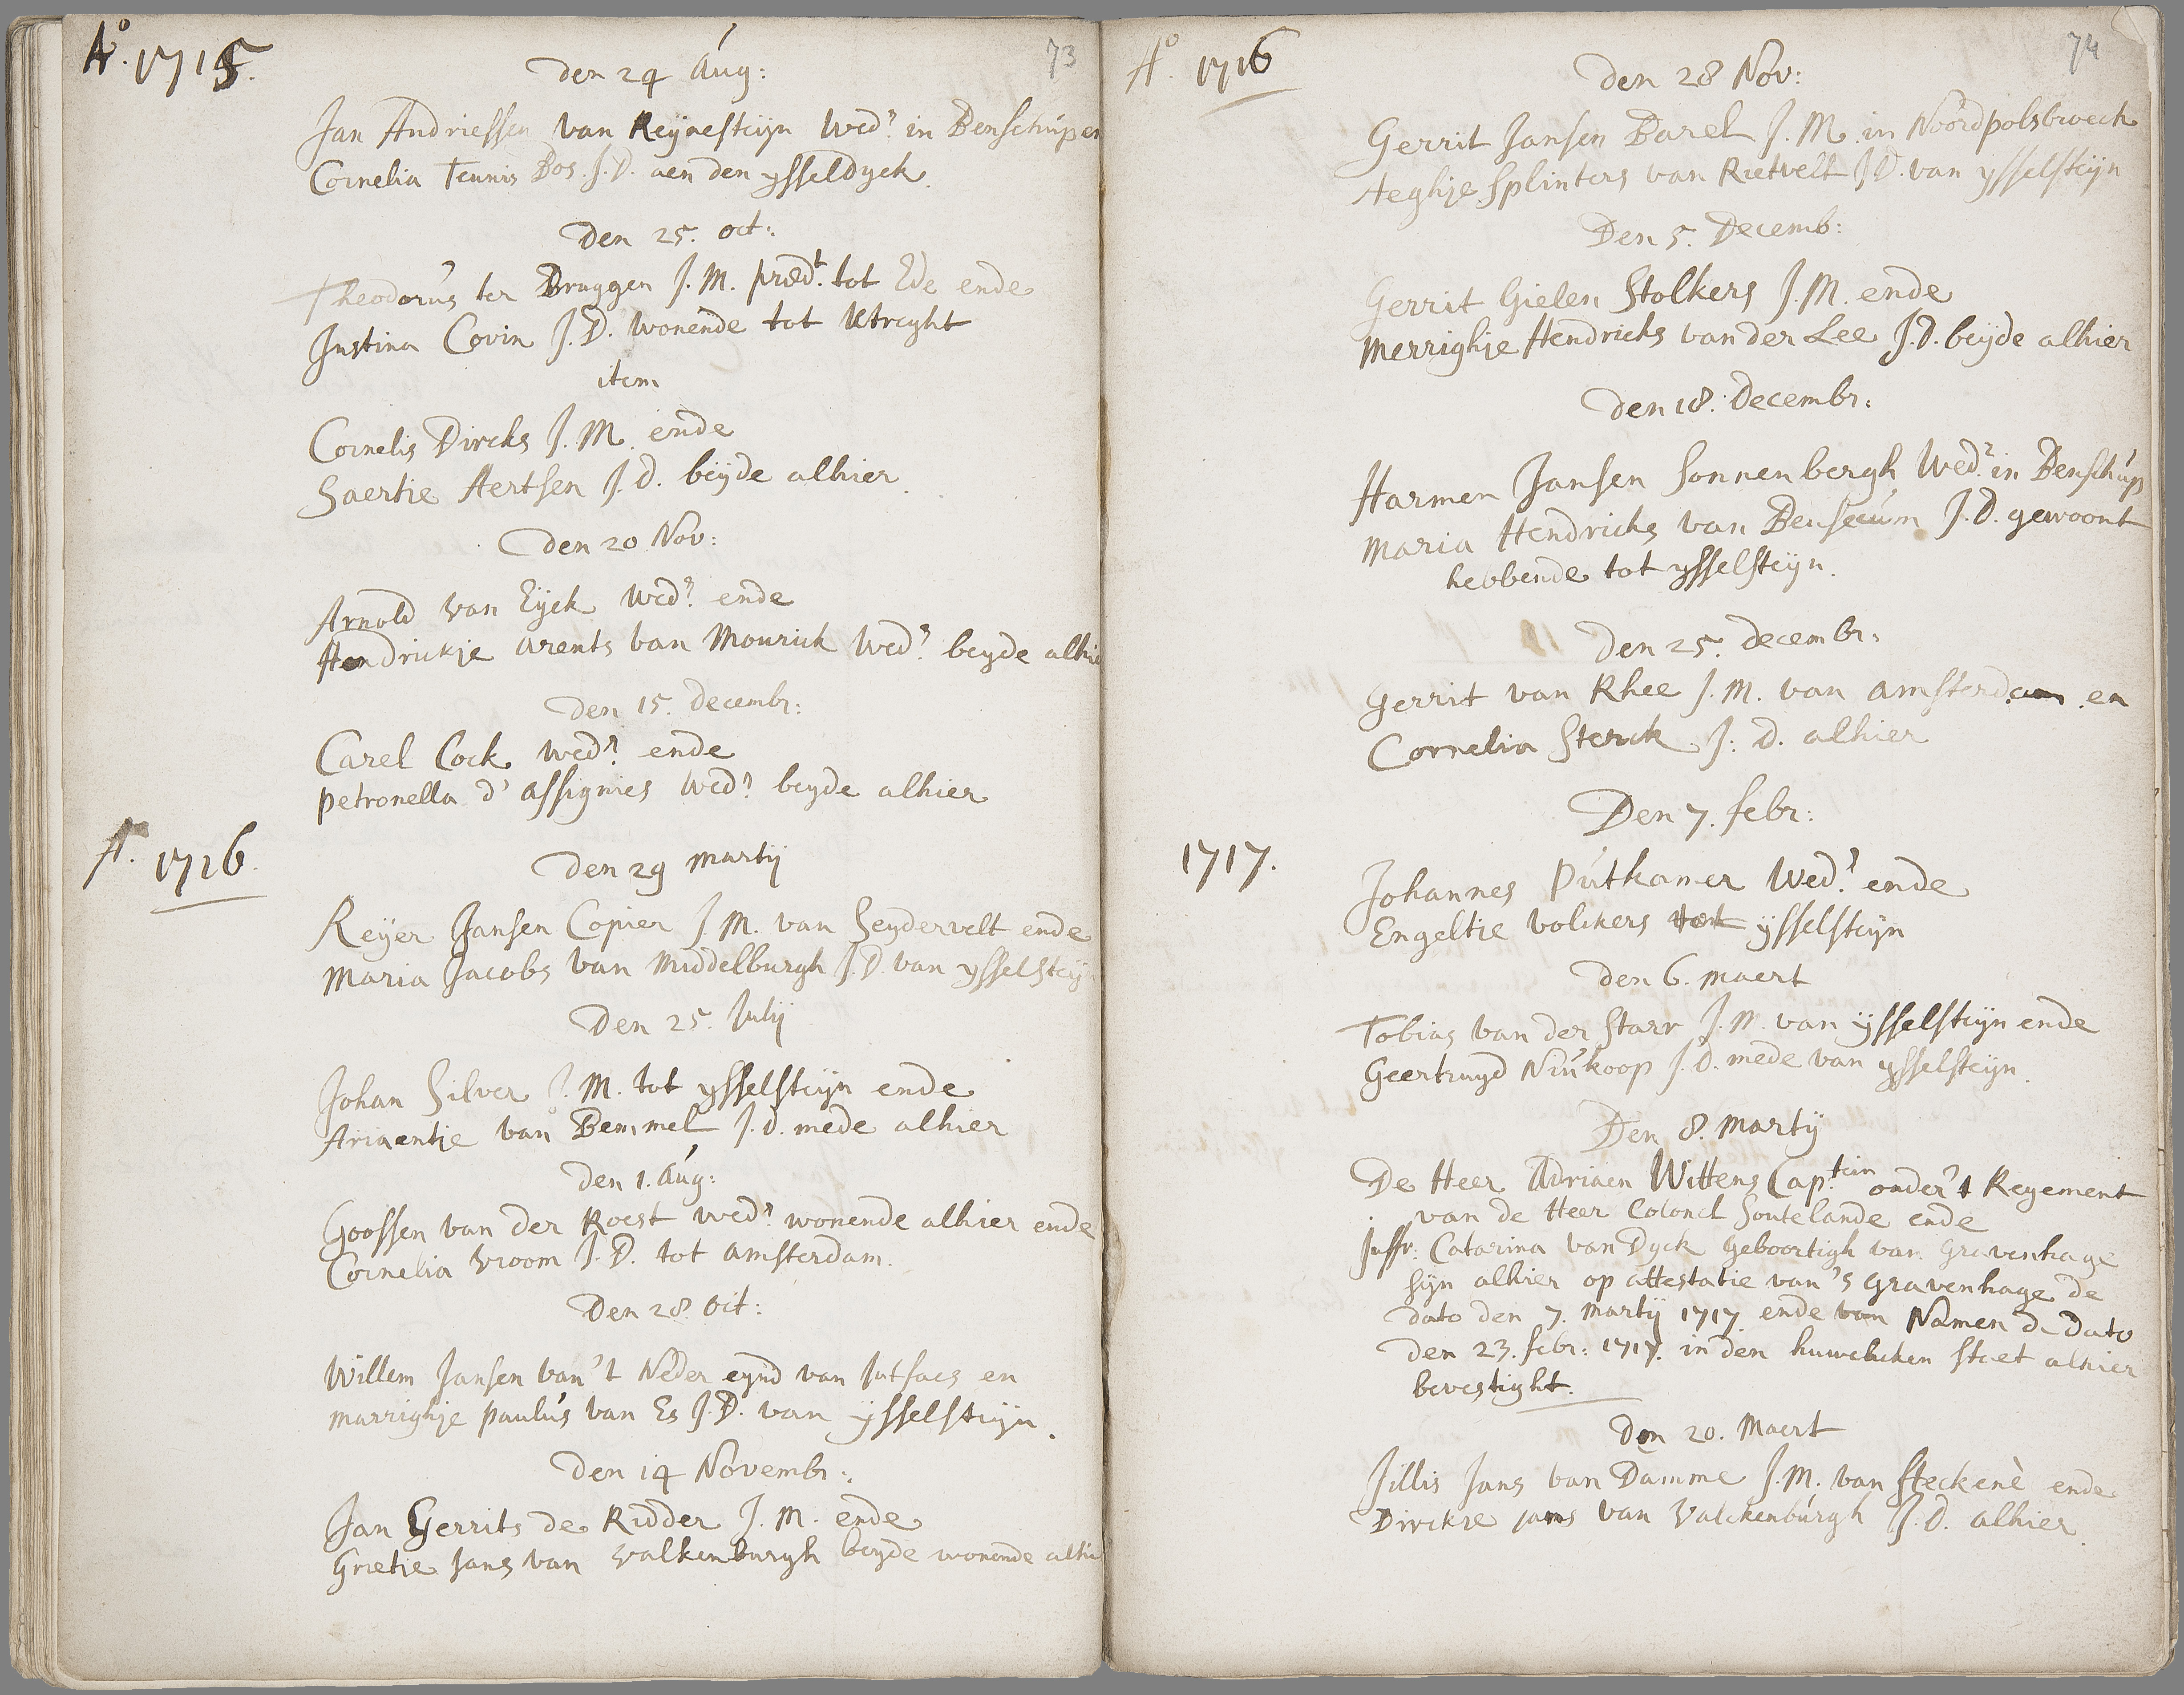 Ao. 1715.
73
Den 24 Aug:
Jan Andriessen van Reynesteijn Wedr. in Benschup en
Cornelia Teunis Bos J.D. aen den ysseldyck.
Den 25. oct:
Theodorus ter Bruggen J.M. præd.t tot Ede ende
Justina Covin J.D. wonende tot Utreght
item
Cornelis Dircks J.M. ende
Saertie Aertsen J.d. beijde alhier.
Den 20 Nov:
Arnold van Eijck Wedr. ende
Hendrickje arents van Mourick Wedr. beyde alhie
Den 15. decembr:
Carel Cock Wedr. ende
petronella d' assignies Wedr. beyde alhier
Ao. 1716.
Den 29 martij
Reijer Jansen Copier J.M. van Seydervelt ende
Maria Jacobs van Middelburgh J.D. van ysselsteij
Den 25. Julij
Johan Silver J.M. tot ysselsteijn ende
Ariaentje van Bemmel J.d. mede alhier
Den 1. Aug:
Goossen van der Roest wedr. wonende alhier ende
Cornelia vroom J.D. tot amsterdam.
Den 28 Oct:
Willem Jansen van 't Neder eynd van Jutfaes en
marrighje paulus van Es J.D. van ijsselsteijn.
Den 14 Novembr:
Jan Gerrits de Ridder J.M. ende
Grietie Jans van valkenburgh beyde wonende alhie
Ao. 1716
74
Den 28 Nov:
Gerrit Jansen Barel J.M. in Noordpolsbroeck
Aeghje Splinters van Rietvelt J.D. van ysselsteijn
Den 5. Decemb:
Gerrit Gielen Stolkers J.M. ende
Merrighje Hendricks van der Lee J.D. beijde alhier
Den 18. Decembr:
Harmen Jansen Sonnenbergh Wedr. in Benschup
Maria Hendricks van Benseeum J.D. gewoont
hebbende tot ysselsteijn.
Den 25. decembr:
Gerrit van Rhee J.M. van amsterdam en
Cornelia Sterck J:D. alhier
Den 7. febr:
1717.
Johannes Putkamer Wedr. ende
Engeltie volckers tot ijsselsteijn
den 6. maert
Tobias van der Starr J.M. van ijsselsteijn ende
Geertruyd Niukoop J.d. mede van ysselsteijn.
Den 8. Martij
De Heer Adriaen Wittens Cap:tein onder 't Regement
van de Heer Colonel Soutelande ende
Juffr: Catarina van Dyck Geboortigh van Gravenhage
sijn alhier op attestatie van 's Gravenhage de
dato den 7. Martij 1717 ende van Namen de Dato
Den 23. febr: 1717. in den huwelicken staet alhier
bevestight.
Den 20. Maert
Jillis Jans van Damme J.M. van Steckenè ende
Dirckie jans van Valckenburgh J.D. alhier.